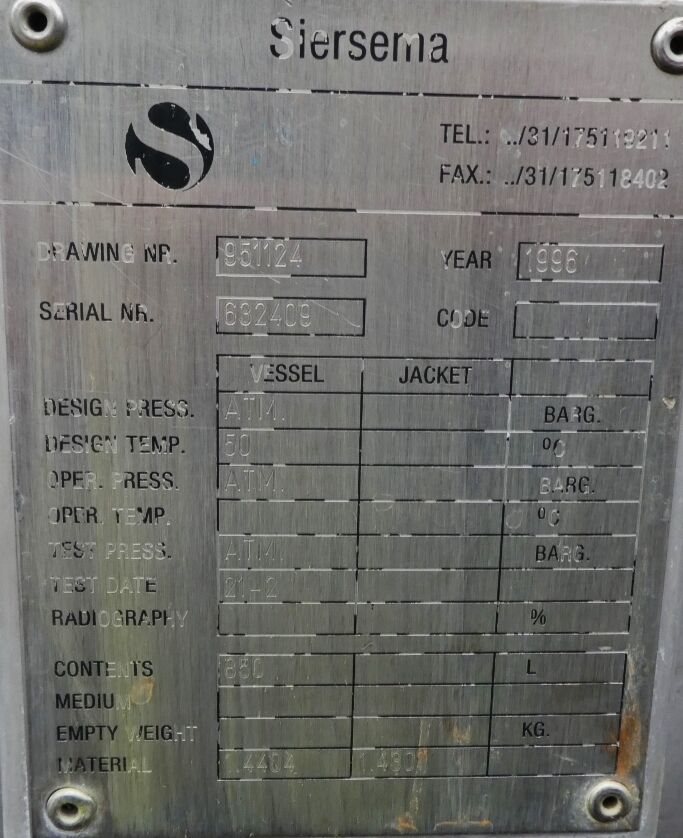 Siersema
TEL.: ../31/175119211
FAX.: ../31/175118402
DRAWING NR. 951124 YEAR 1996
SERIAL NR. 632409 CODE
VESSEL JACKET
DESIGN PRESS. ATM. BARG.
DESIGN TEMP. 50 °C
OPER. PRESS. ATM. BARG.
OPER. TEMP. °C
TEST PRESS. ATM. BARG.
TEST DATE 21-2
RADIOGRAPHY %
CONTENTS 850 L
MEDIUM
EMPTY WEIGHT KG.
MATERIAL 1.4404